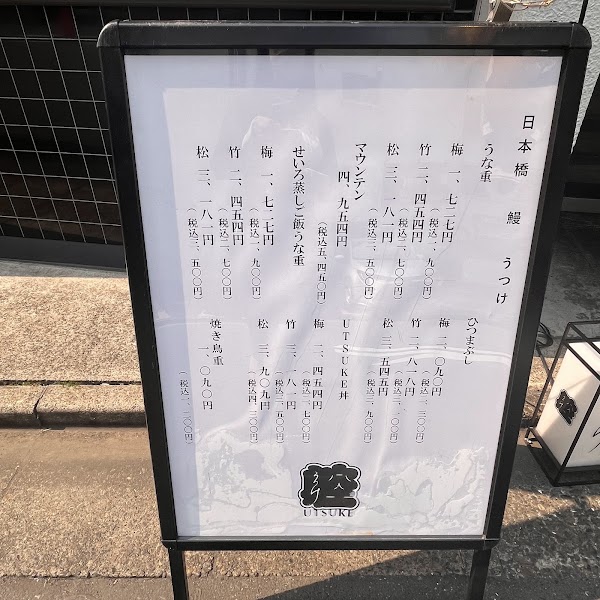 日本橋 鰻 うつけ
うな重
梅 一、七二七円
（税込一、九〇〇円）
竹 二、四五四円
（税込二、七〇〇円）
松 三、一八一円
（税込三、五〇〇円）
マウンテン
四、九五四円
（税込五、四五〇円）
せいろ蒸しご飯うな重
梅 一、七二七円
（税込一、九〇〇円）
竹 二、四五四円
（税込二、七〇〇円）
松 三、一八一円
（税込三、五〇〇円）
ひつまぶし
梅 二、〇九〇円
（税込二、三〇〇円）
竹 二、八一八円
（税込三、一〇〇円）
松 三、五四五円
（税込三、九〇〇円）
UTSUKE丼
梅 二、四五四円
（税込二、七〇〇円）
竹 三、一八一円
（税込三、五〇〇円）
松 三、九〇九円
（税込四、三〇〇円）
焼き鳥重
一、〇九〇円
（税込一、二〇〇円）
空
UTSUKE